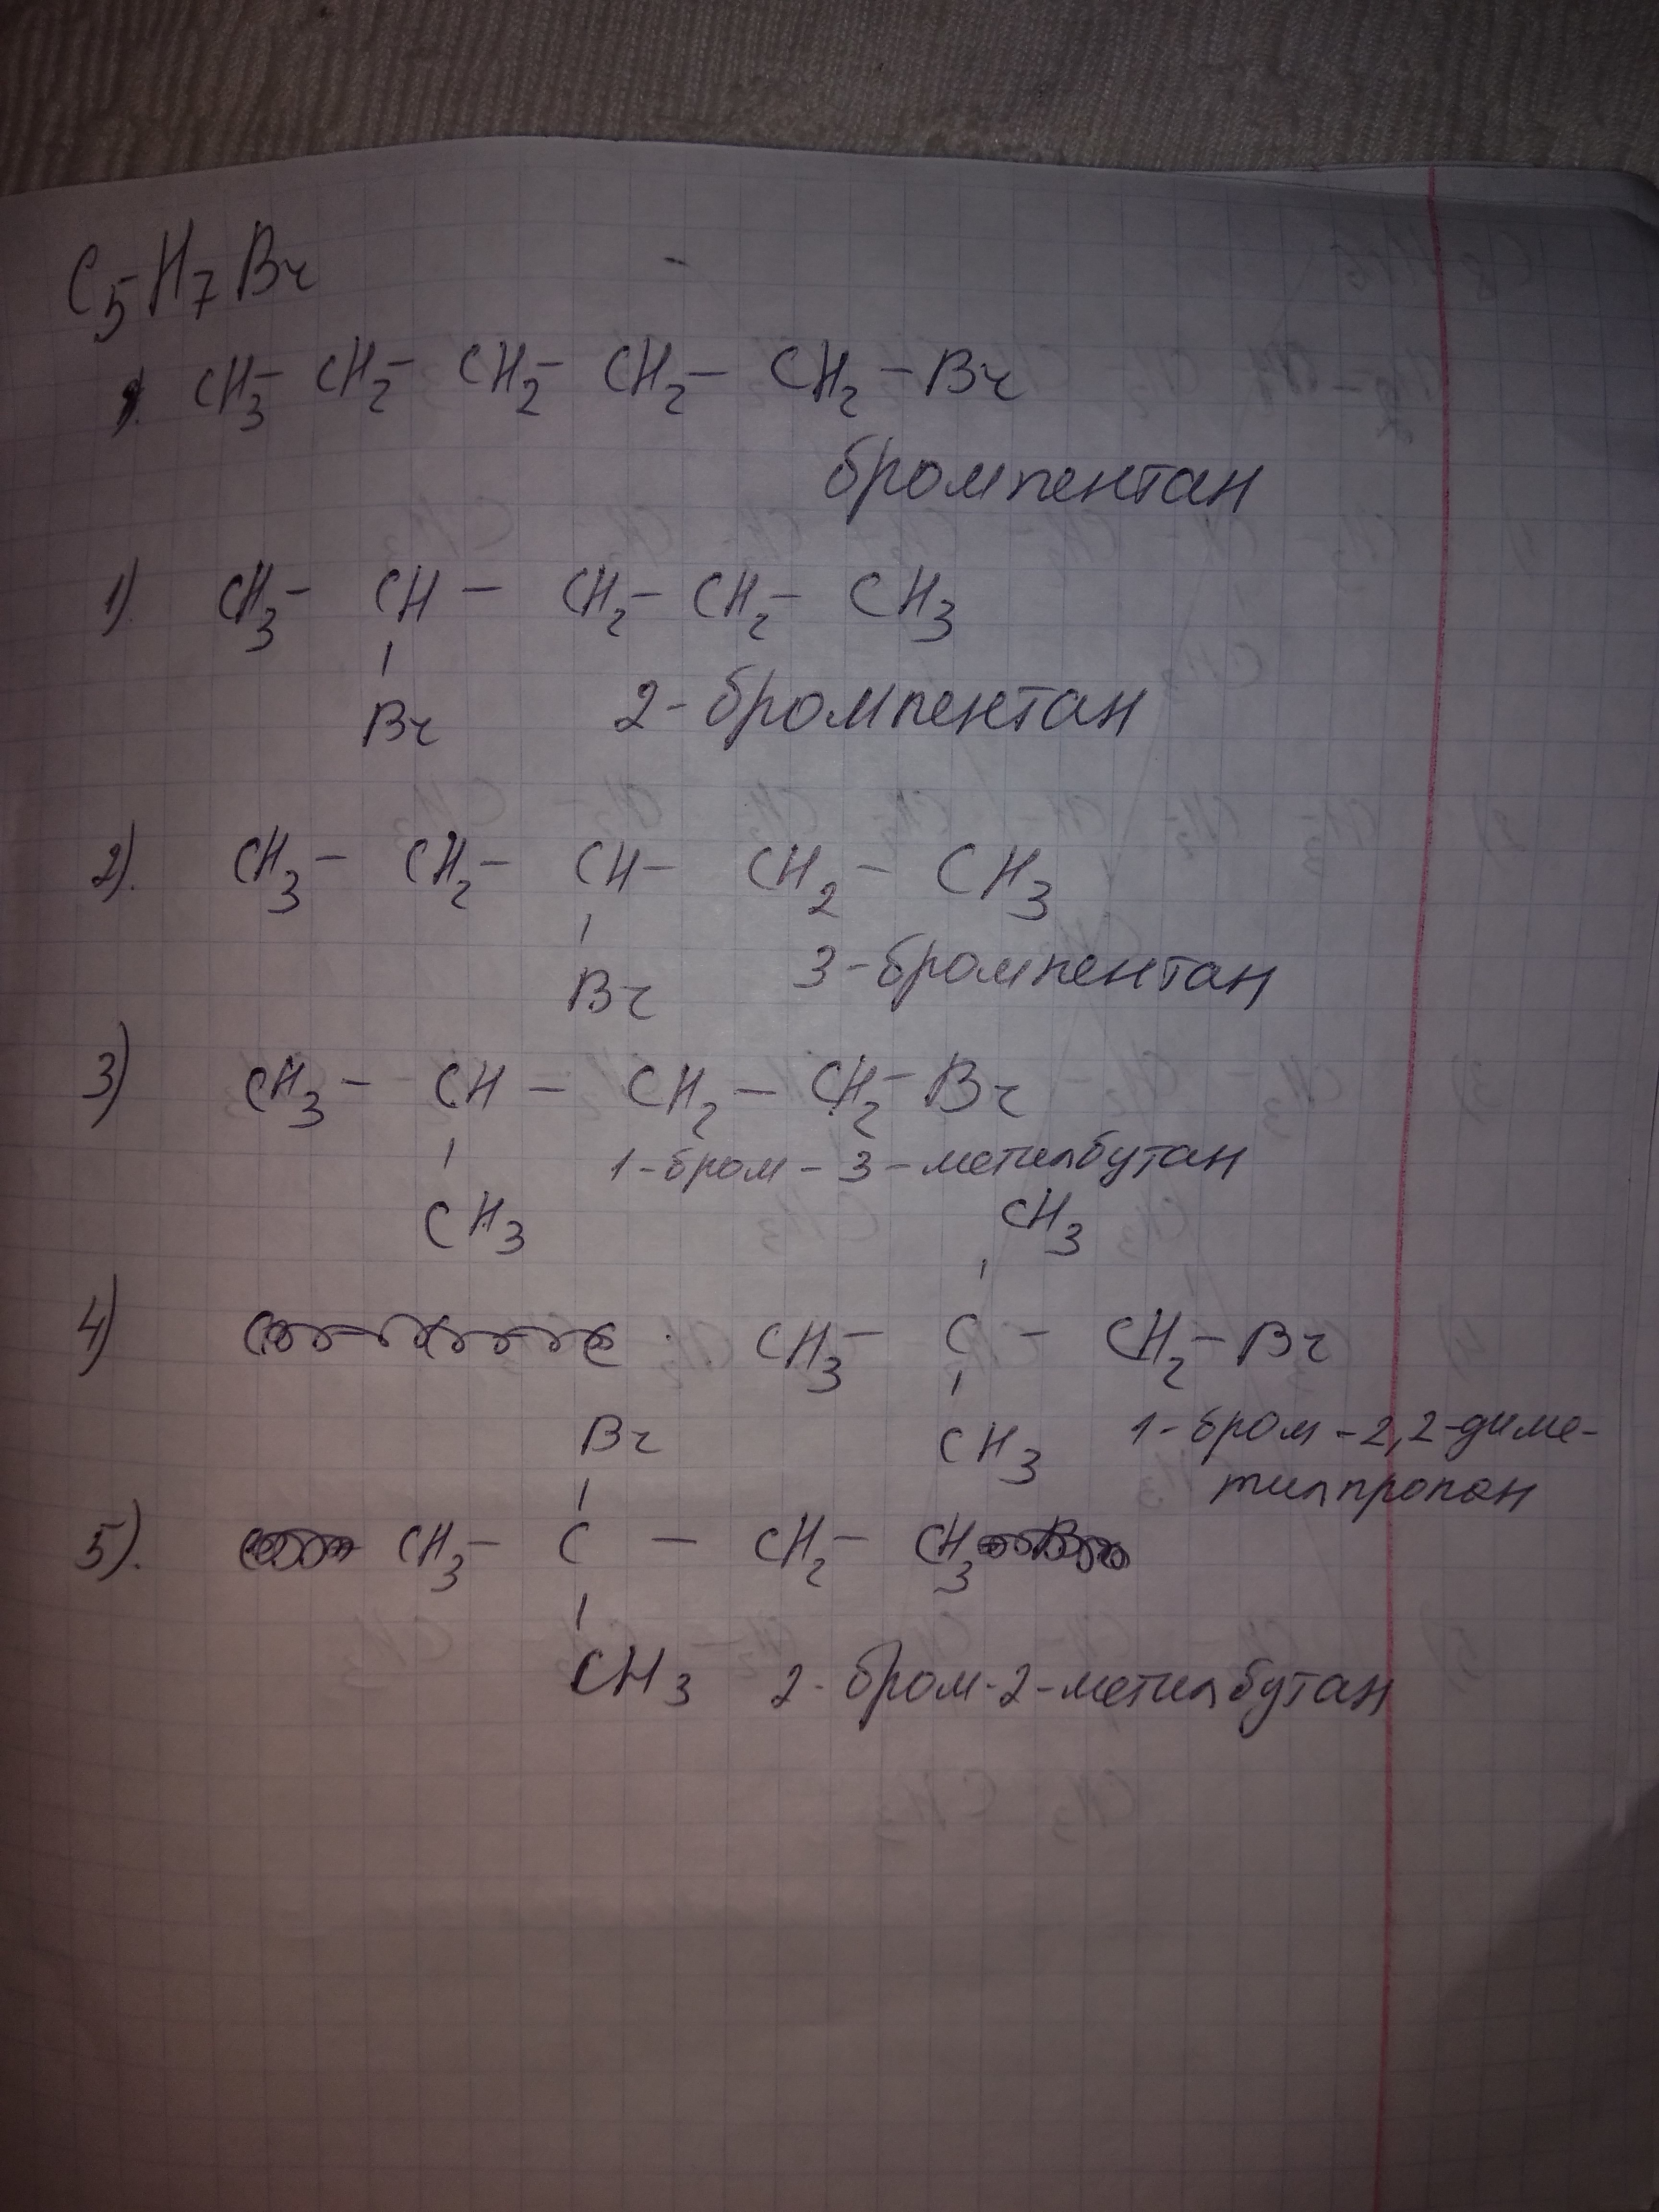 C5H7Br
CH3- CH2- CH2- CH2- CH2-Br
бромпентан
1). CH3- CH - CH2- CH2- CH3
Br 2-бромпентан
2). CH3- CH2- CH- CH2- CH3
Br 3-бромпентан
3) CH3- CH - CH2- CH2-Br
1-бром-3-метилбутан
CH3 CH3
4) CH3- C - CH2-Br
Br CH3 1-бром-2,2-диме-
тилпропан
5). CH3- C - CH2- CH3
CH3 2-бром-2-метилбутан